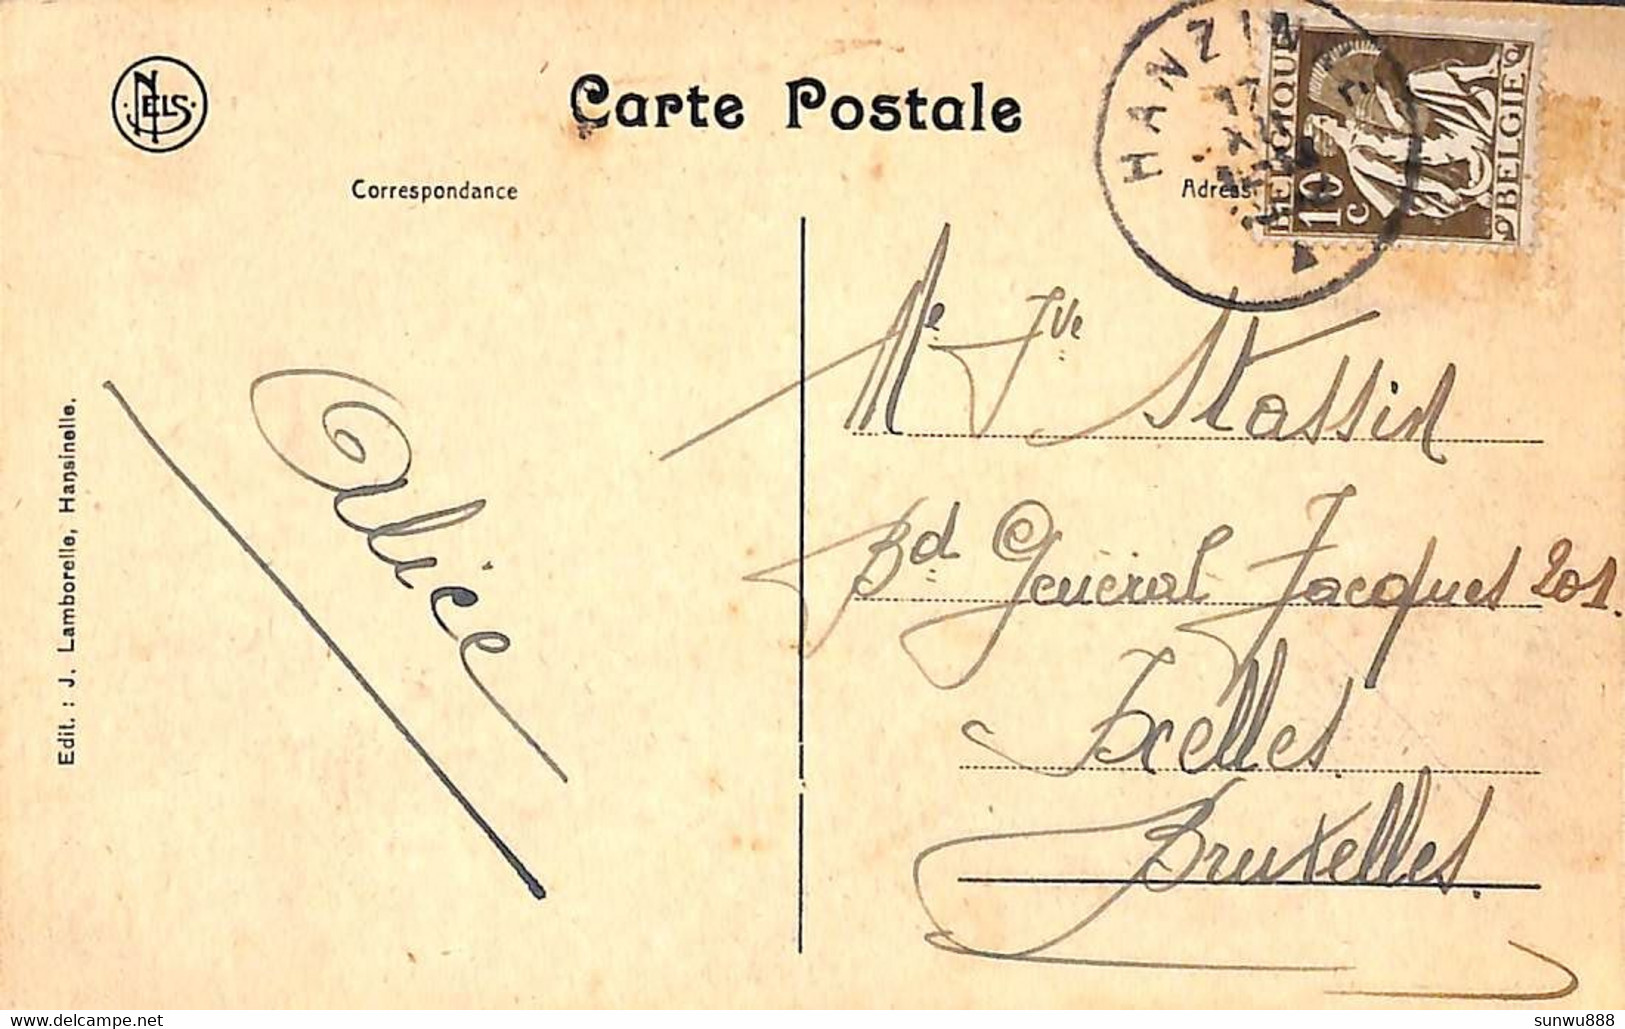 NELS
Carte Postale
Correspondance
Adress
HANZIN
BELGIQUE
10
c
BELGIE
Me Jve Stassin
Bd. Général Jacques 201.
Ixelles.
Bruxelles.
Alice
Edit. : J. Lamborelle, Hansinelle.
sunwu888